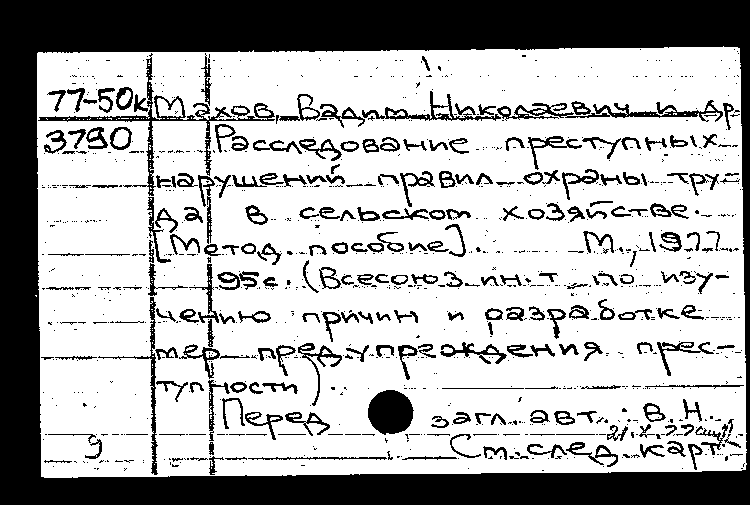 1.
77-50к Махов, Вадим Николаевич и др
3790 Расследование преступных
нарушений правил охраны тру-
да в сельском хозяйстве.
[Метод. пособие]. М., 1977
95с. (Всесоюз. ин.т по изу-
чению причин и разработке
мер предупреждения прес-
тупности).
Перед загл. авт.: В.Н.
21.X.77
9 См. след. карт.